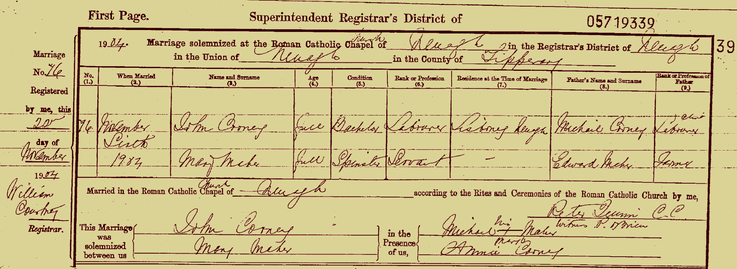 First Page. Superintendent Registrar's District of 05719339
1904. Marriage solemnized at the Roman Catholic Chapel of Nenagh in the Registrar's District of Nenagh 39
in the Union of Nenagh in the County of Tipperary
Marriage
No. 76
Registered
by me, this
day of
November
1904
William
Courtney
Registrar.
No. (1.) When Married (2.) Name and Surname (3.) Age (4.) Condition (5.) Rank or Profession (6.) Residence at the Time of Marriage (7.) Father's Name and Surname (8.) Rank or Profession of Father (9.)
76 November John Cooney full Bachelor Labourer Lisboney Nenagh Michael Cooney Labourer alive
1904 Mary Maher full Spinster Servant — Edward Maher Farmer
Married in the Roman Catholic Chapel of Nenagh according to the Rites and Ceremonies of the Roman Catholic Church by me,
Peter Quinn C.C.
This Marriage was solemnized between us
John Cooney
Mary Maher
in the Presence of us,
Michael his mark Maher Witness P. O'Brien
Annie Cooney